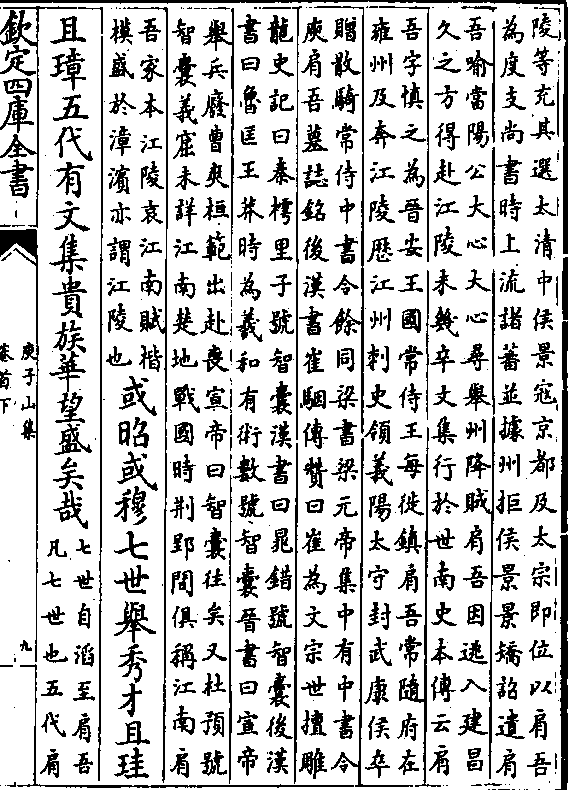 陵等充其選太清中侯景寇京都及太宗即位以肩吾
為度支尚書時上流諸蕃並據州拒侯景景矯詔遣肩
吾喻當陽公大心大心尋舉州降賊肩吾因逃入建昌
久之方得赴江陵未幾卒文集行於世南史本傳云肩
吾字慎之為晉安王國常侍王每徙鎮肩吾常隨府在
雍州及奔江陵歷江州刺史領義陽太守封武康侯卒
贈散騎常侍中書令餘同梁書梁元帝集中有中書令
庾肩吾墓誌銘後漢書崔駰傳贊曰崔為文宗世擅雕
龍史記曰秦樗里子號智囊漢書曰晁錯號智囊後漢
書曰魯匡王莽時為羲和有術數號智囊晉書曰宣帝
舉兵廢曹爽桓範出赴喪宣帝曰智囊往矣又杜預號
智囊義窟未詳江南楚地戰國時荆郢間俱稱江南肩
吾家本江陵哀江南賦楷
模盛於漳濱亦謂江陵也
或昭或穆七世舉秀才且珪
且璋五代有文集貴族華望盛矣哉
七世自滔至肩吾
凡七世也五代肩
欽定四庫全書
庾子山集
卷首下
九